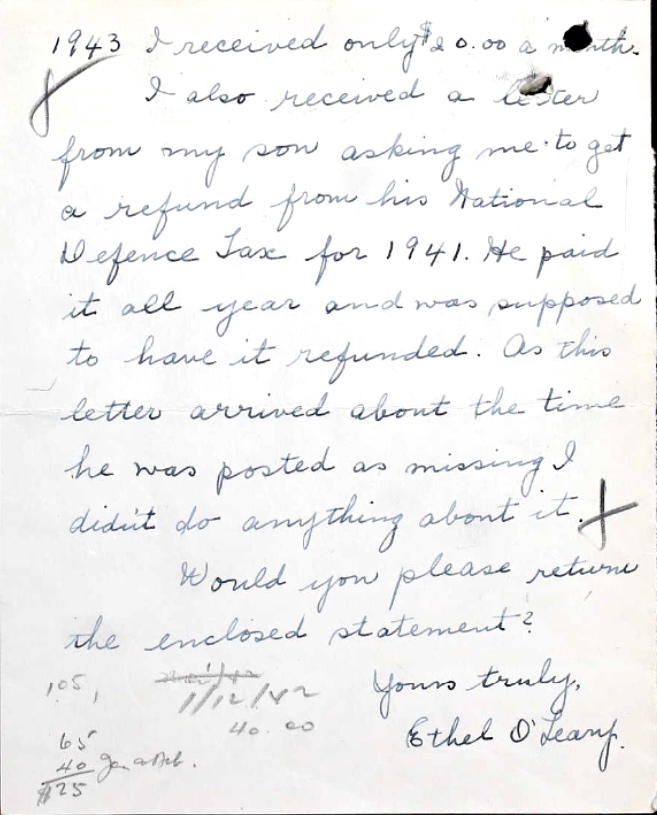 1943 I received only $20.00 a month.
I also received a letter
from my son asking me to get
a refund from his National
Defence Tax for 1941. He paid
it all year and was supposed
to have it refunded. As this
letter arrived about the time
he was posted as missing I
didn't do anything about it.
Would you please return
the enclosed statement?
Yours truly,
Ethel O'Leary.
105,
1/12/42
40.00
65
40 Jan & Feb.
$25